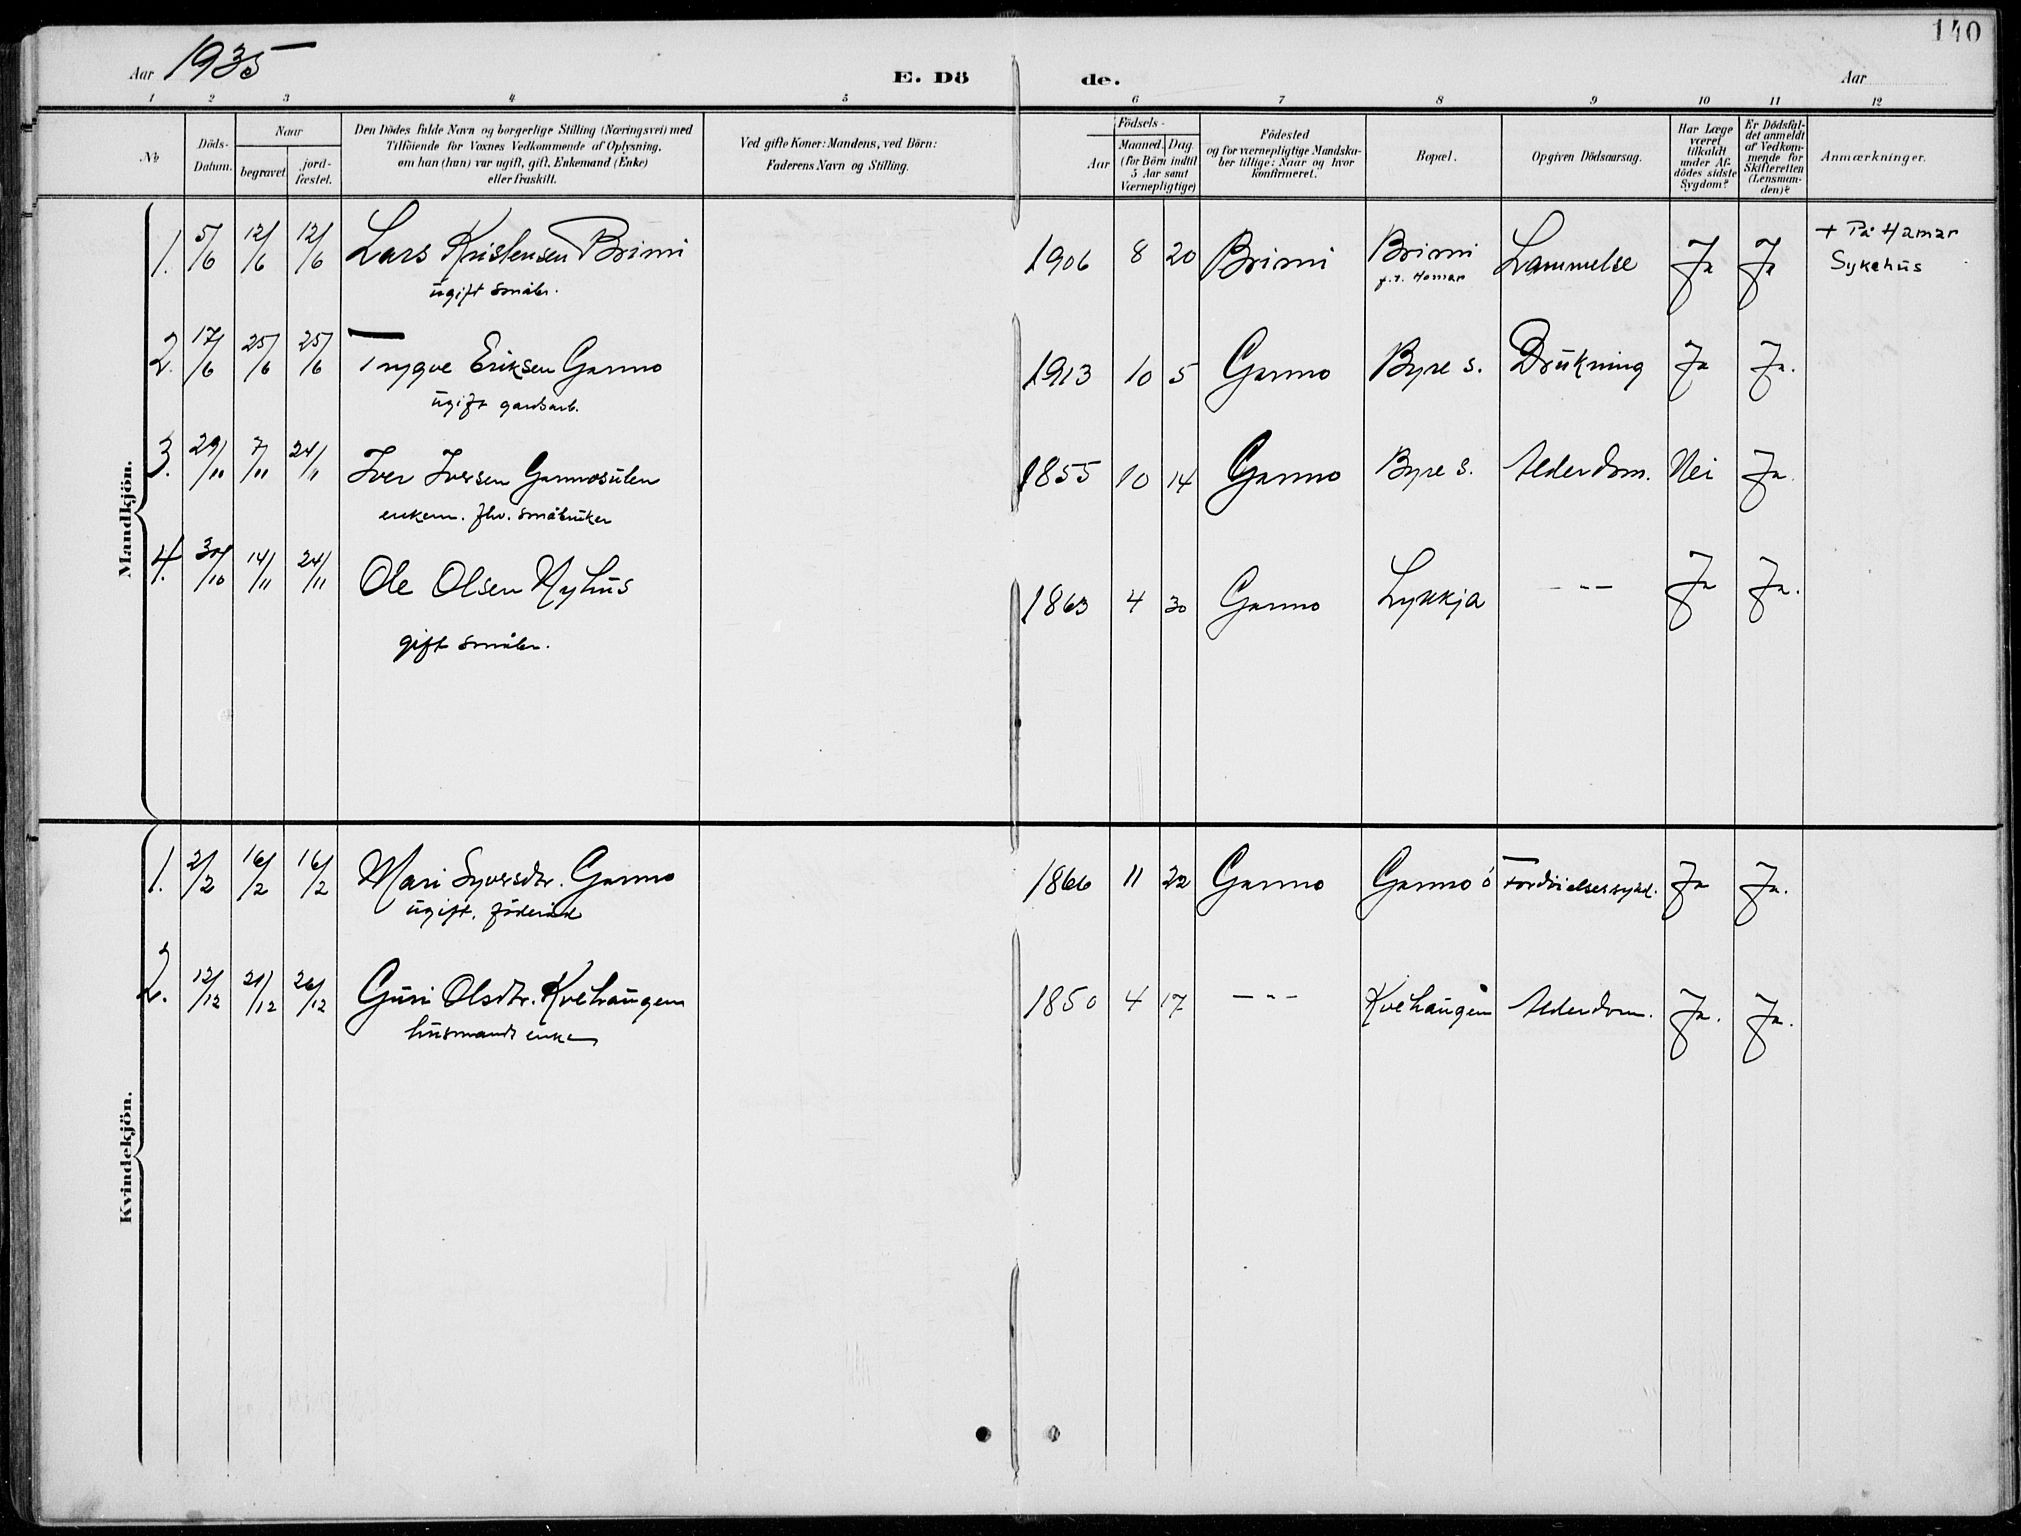 140
Aar 1935
E. Dö de.
Aar
1 2 3 4 5 6 7 8 9 10 11 12
No
Döds-
Datum.
Naar
begravet
jord-
fæstet.
Den Dödes fulde Navn og borgerlige Stilling (Næringsvei) med
Tilföiende for Voxnes Vedkommende af Oplysning,
om han (hun) var ugift, gift, Enkemand (Enke)
eller fraskilt.
Ved gifte Koner: Mandens, ved Börn:
Faderens Navn og Stilling.
Födsels-
Aar
Maaned. Dag.
(for Börn indtil
5 Aar samt
Værnepligtige)
Födested
og for værnepligtige Mandska-
ber tillige: Naar og hvor
Konfirmeret.
Bopæl.
Opgiven Dödsaarsag.
Har Læge
været
tilkaldt
under Af-
dödes sidste
Sygdom?
Er Dödsfal-
det anmeldt
af Vedkom-
mende for
Skifteretten
(Lensman-
den)?
Anmærkninger.
Mandkjön.
1. 5/6 12/6 12/6 Lars Kristensen Brimi 1906 8 20 Brimi Brimi Lammelse Ja Ja + På Hamar
ugift småbr. f.t. Hamar Sykehus
2. 17/6 25/6 25/6 Trygve Eriksen Garmo 1913 10 5 Garmo Byre s. Drukning Ja Ja.
ugift gardsarb.
3. 29/10 7/11 24/11 Iver Iversen Garmosulen 1855 10 14 Garmo Byre s. Alderdom. Nei Ja.
enkem. fhv. småbruker
4. 30/10 14/11 24/11 Ole Olsen Nyhus 1863 4 30 Garmo Lykkja - " - Ja Ja.
gift småbr.
Kvindekjön.
1. 2/2 16/2 16/2 Mari Syversdtr. Garmo 1866 11 22 Garmo Garmo ö Fordöielsessykd. Ja Ja.
ugift. föderåd
2. 12/12 21/12 26/12 Guri Olsdtr. Kvehaugen 1850 4 17 - " - Kvehaugen Alderdom. Ja. Ja.
husmands enke